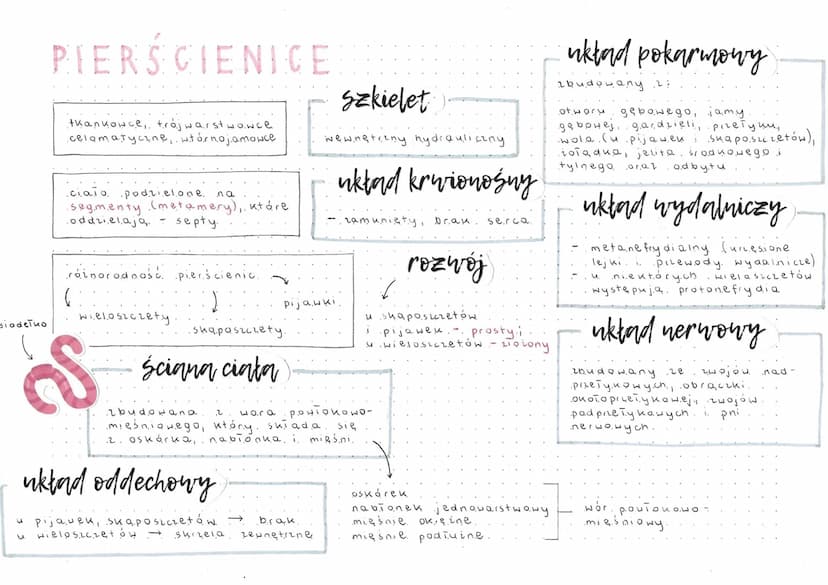 PIERŚCIENICE
tkankowce, trójwarstwowce
celomatyczne, wtórnojamowce
ciało podzielone na
segmenty (metamery), które
oddzielają - septy
różnorodność pierścienic
wieloszczety
skąposzczety
pijawki
siodełko
szkielet
wewnętrzny hydrauliczny
układ krwionośny
- zamknięty, brak serca
rozwój
u skąposzczetów
i pijawek - prosty;
u wieloszczetów - złożony
ściana ciała
zbudowana z wora powłokowo-
mięśniowego, który składa się
z oskórka, nabłonka i mięśni
układ oddechowy
u pijawek, skąposzczetów → brak
u wieloszczetów → skrzela zewnętrzne
oskórek
nabłonek jednowarstwowy
mięśnie okrężne
mięśnie podłużne
wór powłokowo-
mięśniowy
układ pokarmowy
zbudowany z:
otworu gębowego, jamy
gębowej, gardzieli, przełyku,
wola (u pijawek i skąposzczetów),
żołądka, jelita środkowego i
tylnego oraz odbytu
układ wydalniczy
- metanefrydialny (urzęsione
lejki i przewody wydalnicze)
- u niektórych wieloszczetów
występują protonefrydia
układ nerwowy
zbudowany ze zwojów nad-
przełykowych, obrączki
okołoprzełykowej, zwojów
podprzełykowych i pni
nerwowych